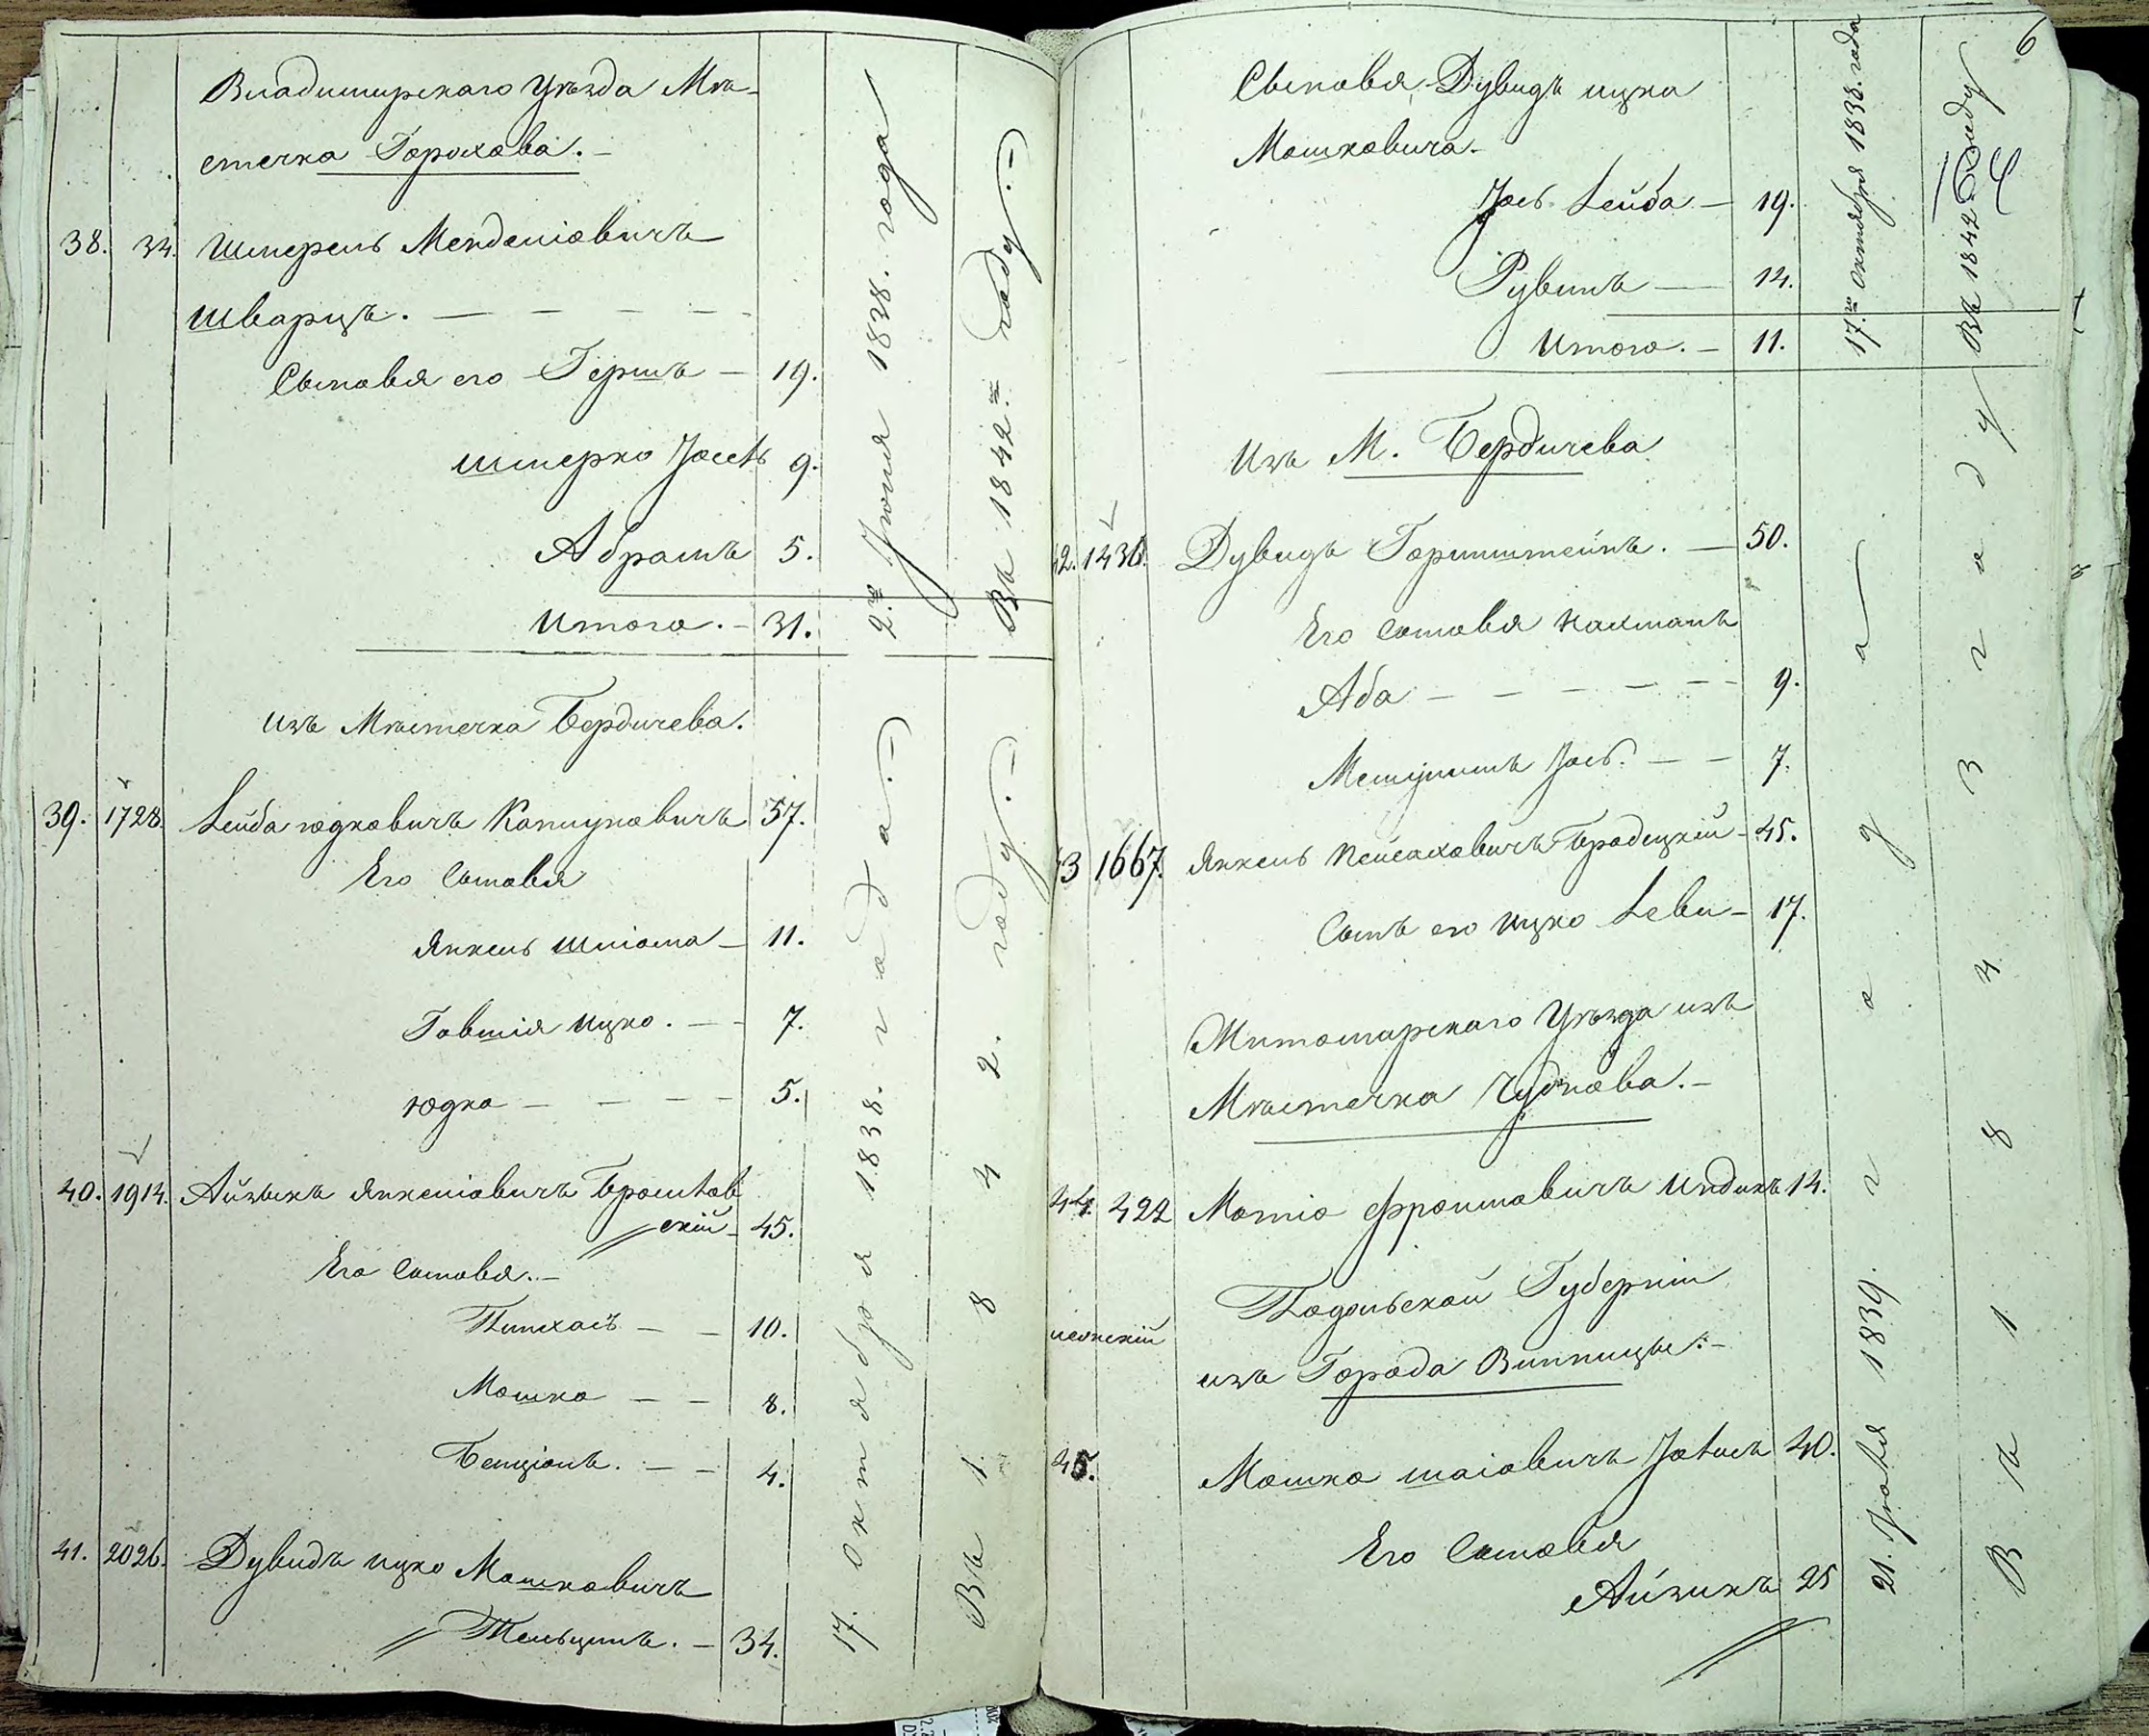 Владимирскаго Уѣзда Мѣ-
стечка Горохова.-
38. 34. Шмерель Менделіовичъ
Шварцъ. - - - - -
Сыновья его Гершъ - 19.
Шмерко Іосеѳъ 9.
Абрамъ 5.
Итого. - 31.
2.го Іюня 1838. года
Въ 1842.м году.-
изъ Мѣстечка Бердичева.
39. 1728. Лейба Юдковичъ Капцуновичъ 57.
Его Сыновья
Янкель Шліома - 11.
Говшія Ицко. - - 7.
Юдка - - - - 5.
40. 1914. Айзыкъ Янкеліовичъ
скій - 45.
Его Сыновья.-
Пинхасъ - - 10.
Мошко - - 8.
Бенціонъ. - - 4.
41. 2026. Дувидъ Ицко Мошковичъ
Тельцинъ. - 34.
17. Октября 1838. года.-
Въ 1842. году.-
6
Сыновья Дувидъ Ицка
Мошковича-
Іось Лейба - 19.
Рувинъ - 14.
Итого. - 11.
17.го Октября 1838. года
Въ 1842 году
Изъ М. Бердичева
42. 1436. Дувидъ Горинштейнъ. - 50.
Его Сыновья Нахманъ
Аба - - - - - - 9.
Мешулимъ Іось. - - 7.
43 1667. Янкель Пейсаховичъ Бродецкій - 45.
Сынъ его Ицко Леви - 17.
Житомирскаго Уѣзда изъ
Мѣстечка Чуднова.-
44. 422 Мотіо Фроимовичъ Индикъ 14.
Подольской Губерніи
изъ Города Винницы.-
45. Мошко Шаіовичъ 40.
Его Сыновья
Айзикъ 25
21. 1839. года
Въ 1843 году